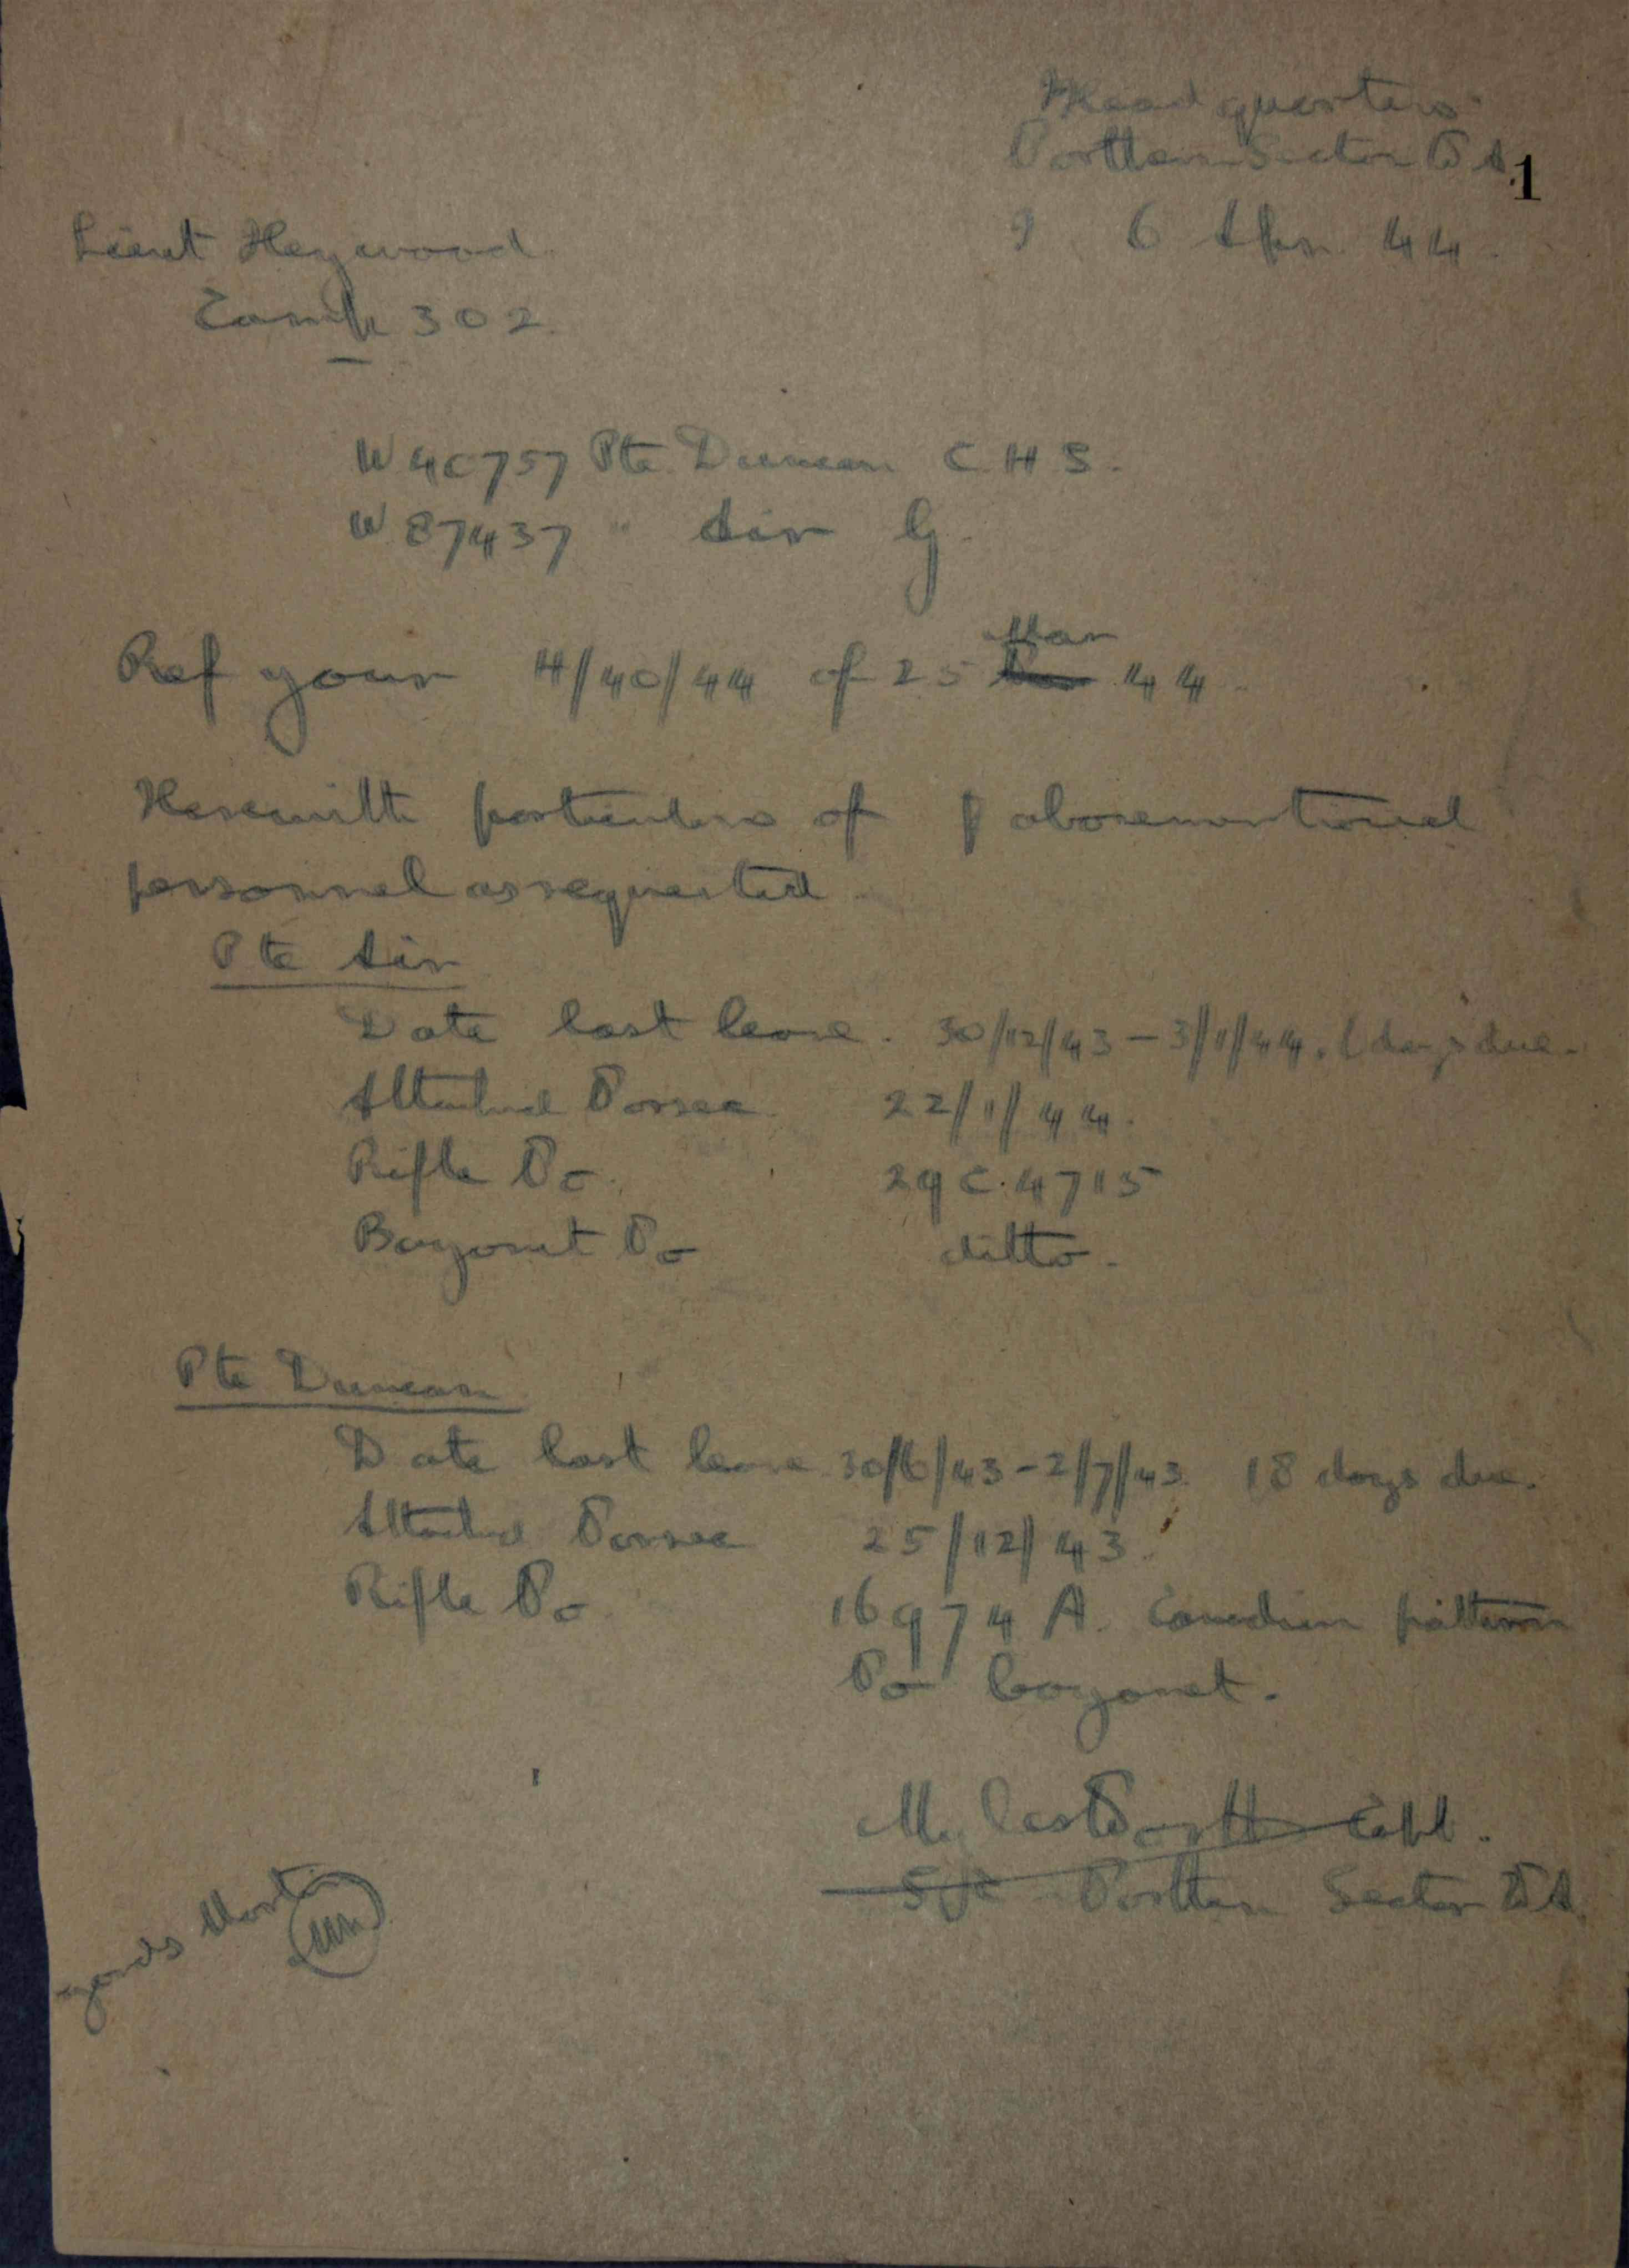 Headquarters
Northern Sector
1
6 Apr 44.
Lieut Heywood
Camp 302.
W40757 Pte Duncan C H S.
W87437 " Air G.
Ref your H/40/44 of 25 Mar 44.
Herewith particulars of abovementioned
personnel as requested.
Pte Air
Date last leave. 30/12/43 - 3/1/44. days due.
Attached Norsec 22/1/44.
Rifle No. 29 C. 4715
Bayonet No ditto.
Pte Duncan
Date last leave 30/6/43 - 2/7/43. 18 days due.
Attached Norsec 25/12/43.
Rifle No. 16974 A. Canadian pattern
No bayonet.
North Capt.
Northern Sector